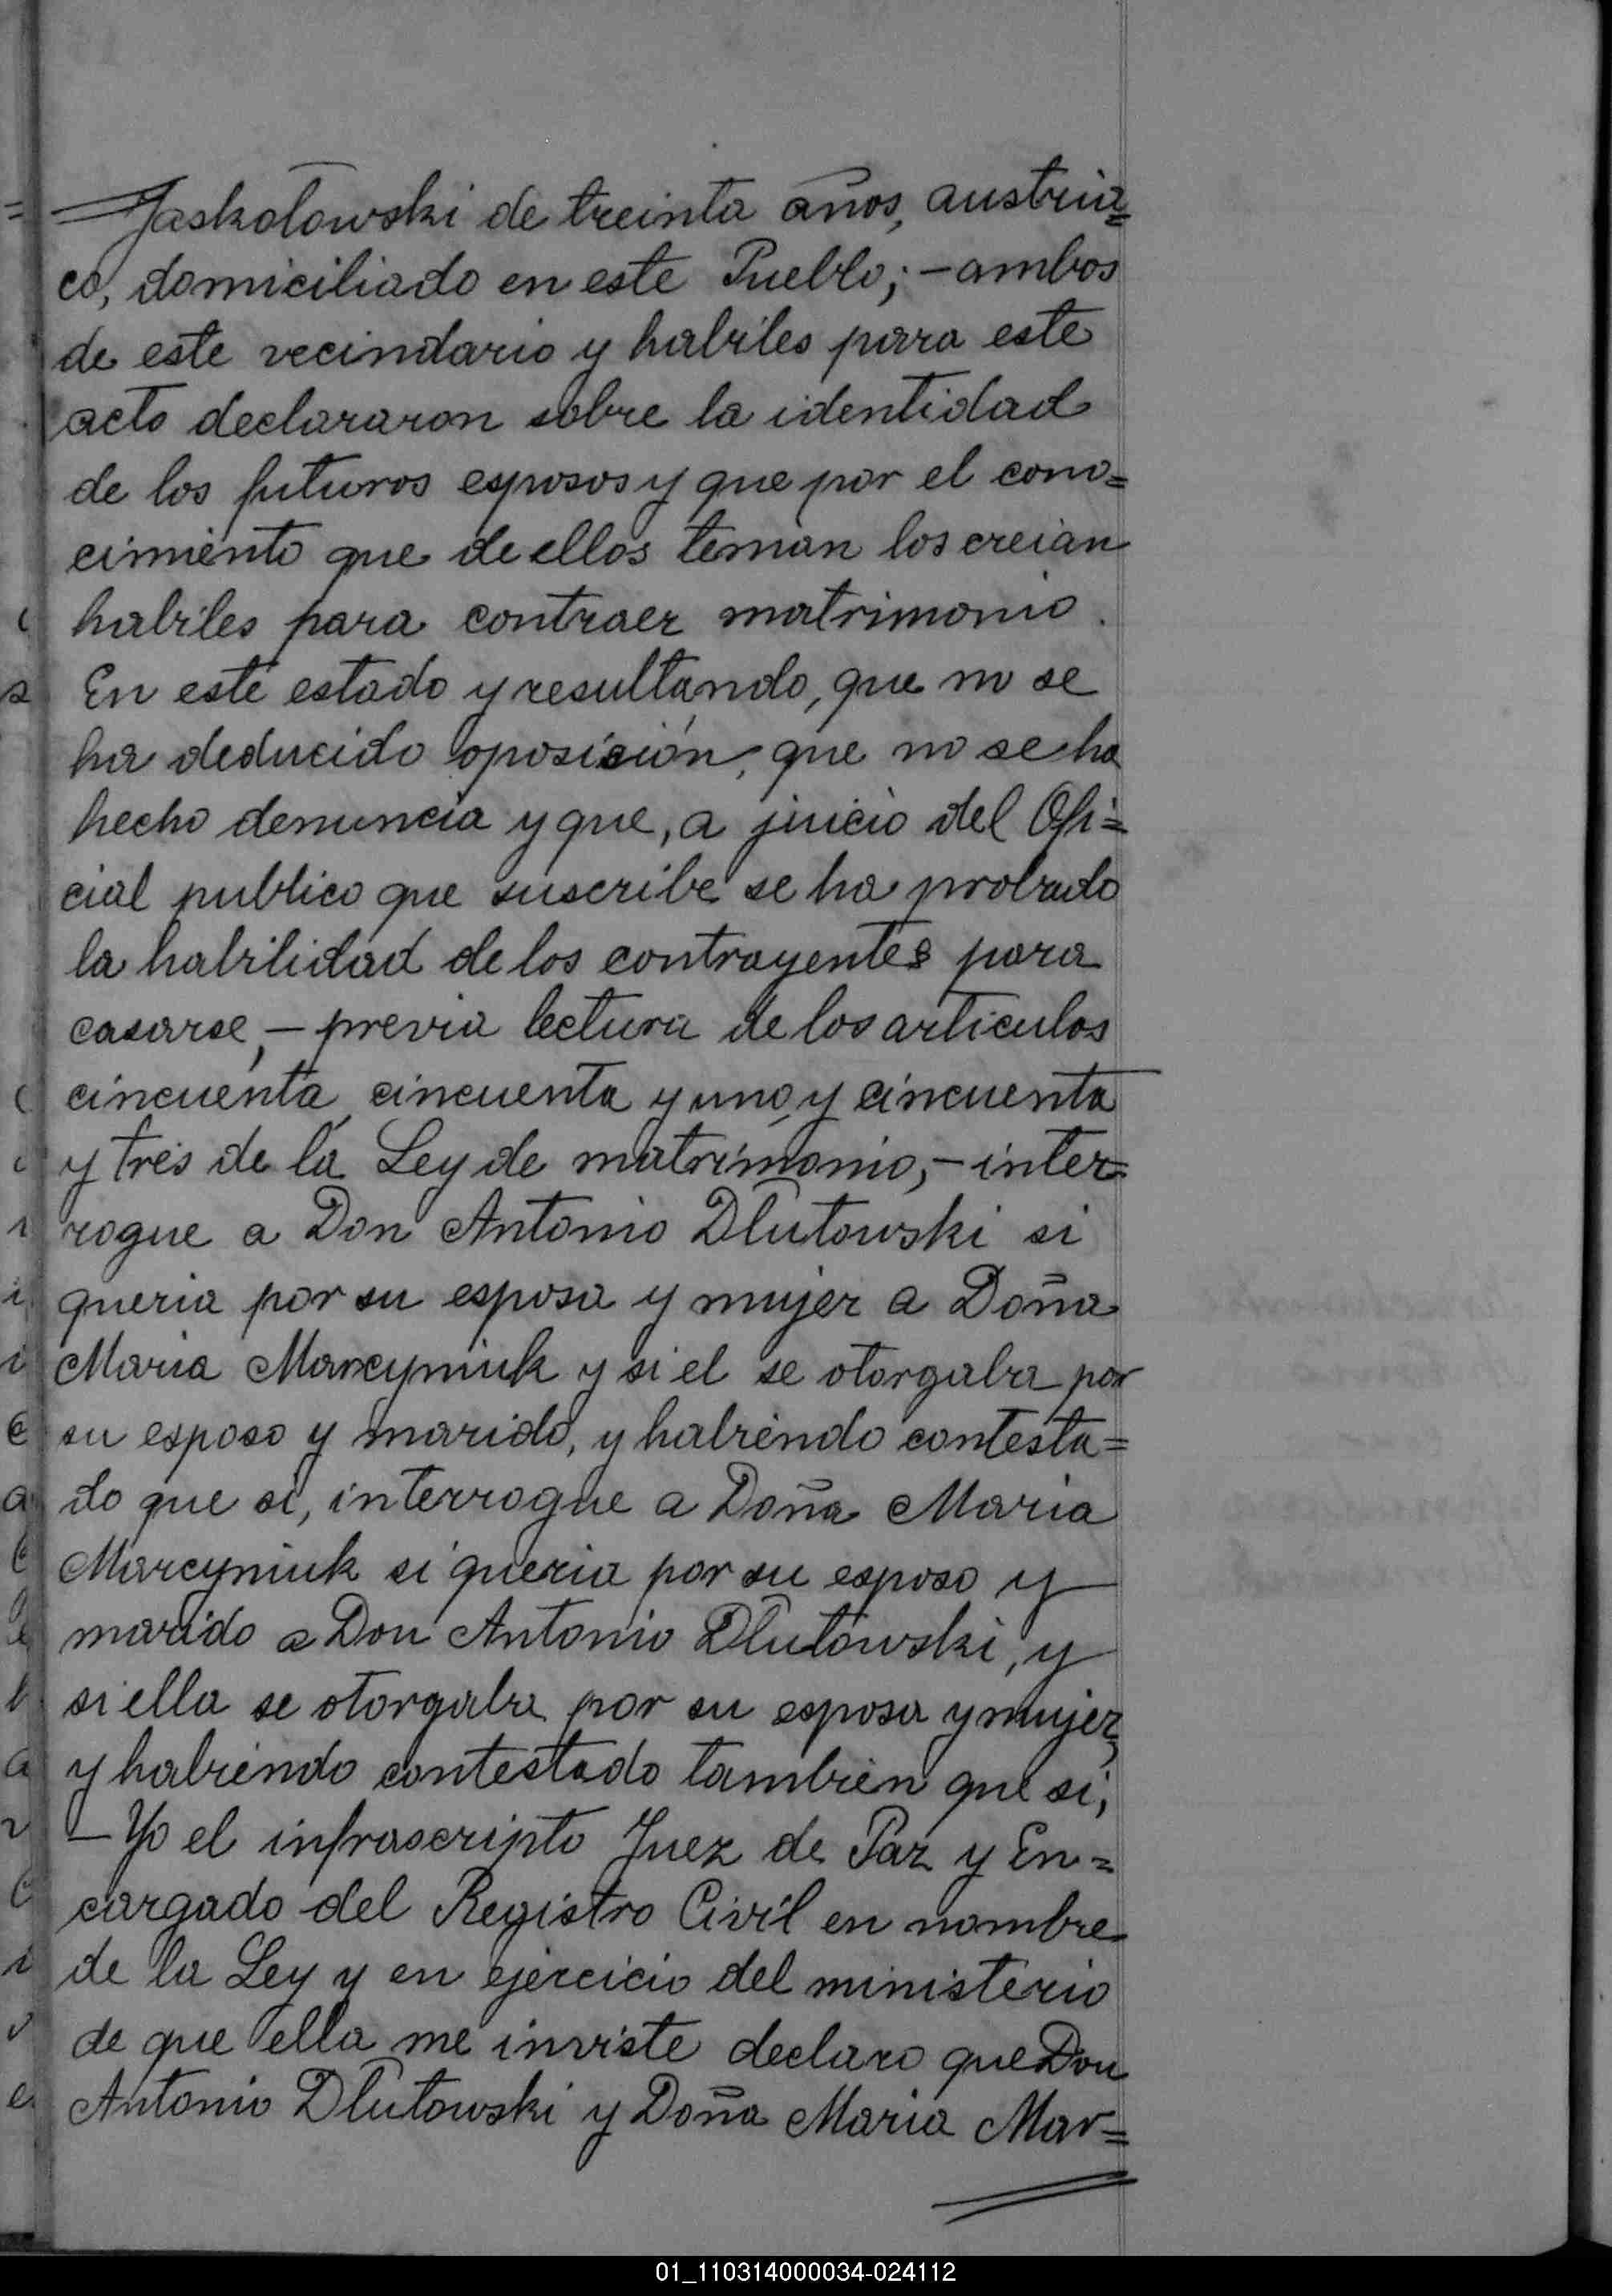 Jaskolowski de treinta años, austria=
co, domiciliado en este Pueblo; - ambos
de este vecindario y habiles para este
acto declararon sobre la identidad
de los futuros esposos y que por el cono=
cimiento que de ellos tenian los creian
habiles para contraer matrimonio.
En este estado y resultando, que no se
ha deducido oposición, que no se ha
hecho denuncia y que, a juicio del Ofi=
cial publico que suscribe se ha probado
la habilidad de los contrayentes para
casarse, - previa lectura de los articulos
cincuenta, cincuenta y uno, y cincuenta
y tres de la Ley de matrimonio, - inter=
rogue a Don Antonio Dlutowski si
queria por su esposa y mujer a Doña
Maria Marcyniuk y si el se otorgaba por
su esposo y marido, y habiendo contesta=
do que si, interrogue a Doña Maria
Marcyniuk si queria por su esposo y
marido a Don Antonio Dlutowski, y
si ella se otorgaba por su esposa y mujer,
y habiendo contestado tambien que si,
- Yo el infrascripto Juez de Paz y En=
cargado del Registro Civil en nombre
de la Ley y en ejercicio del ministerio
de que ella me inviste declaro que Don
Antonio Dlutowski y Doña Maria Mar=
01_110314000034-024112